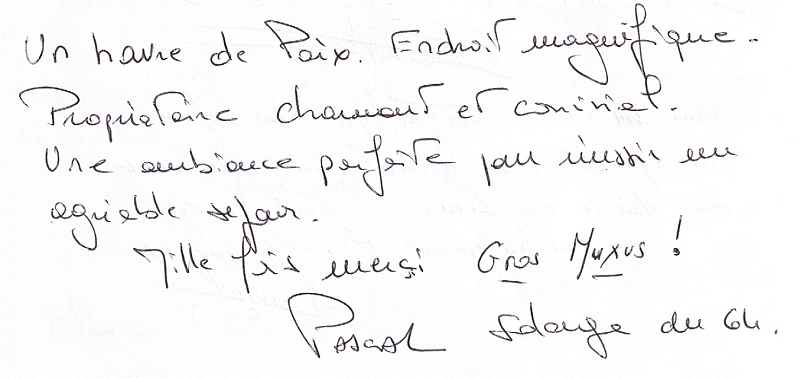 Un havre de Paix. Endroit magnifique.
Propriétaire charmant et convivial.
Une ambiance parfaite pour réussir un
agréable séjour.
Mille fois merçi Gros Muxus !
Pascal Solange du 64.